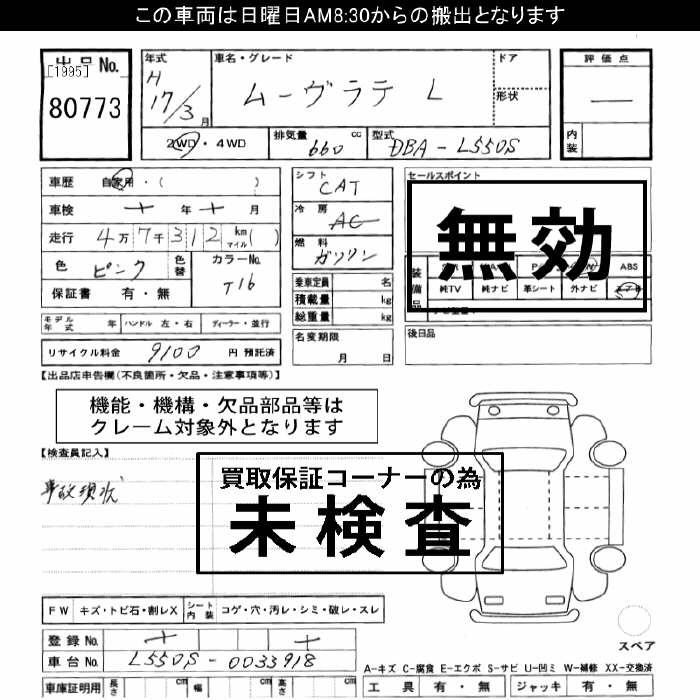 この車両は日曜日AM8:30からの搬出となります
出品No.
[1995]
80773
年式
H
17/3月
車名・グレード
ムーヴラテ L
ドア
形状
評価点
—
内装
2WD・4WD
排気量 660 cc
型式 DBA-L550S
車歴 自家用・( )
車検 年 月
走行 4万7千312 km マイル( )
色 ピンク 色替
カラーNo. T16
保証書 有・無
シフト CAT
冷房 AC
燃料 ガソリン
乗車定員 名
積載量 kg
総重量 kg
セールスポイント
無効
装備品
ABS
純TV 純ナビ 革シート 外ナビ
後日品
モデル年式 年 ハンドル 左・右 ディーラー・並行
リサイクル料金 9100 円 預託済
名変期限
月 日
【出品店申告欄(不良箇所・欠品・注意事項等)】
機能・機構・欠品部品等は
クレーム対象外となります
【検査員記入】
事故現状
買取保証コーナーの為
未検査
FW キズ・トビ石・割レX シート内装 コゲ・穴・汚レ・シミ・破レ・スレ
登録No.
車台No. L550S-0033918
車庫証明用 長さ cm 幅 cm 高さ cm
スペア
A-キズ C-腐食 E-エクボ S-サビ U-凹ミ W-補修 XX-交換済
工具 有・無 ジャッキ 有・無